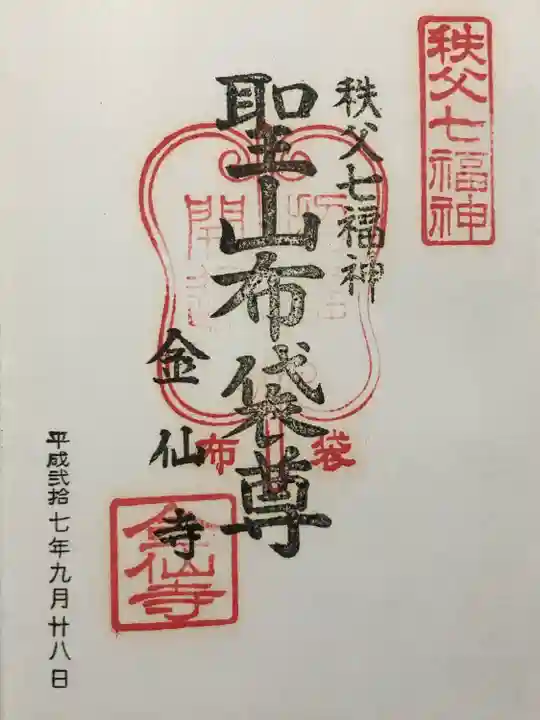 秩父七福神
秩父七福神
聖山布袋尊
布袋
金仙寺
金仙寺
平成弐拾七年九月廿八日